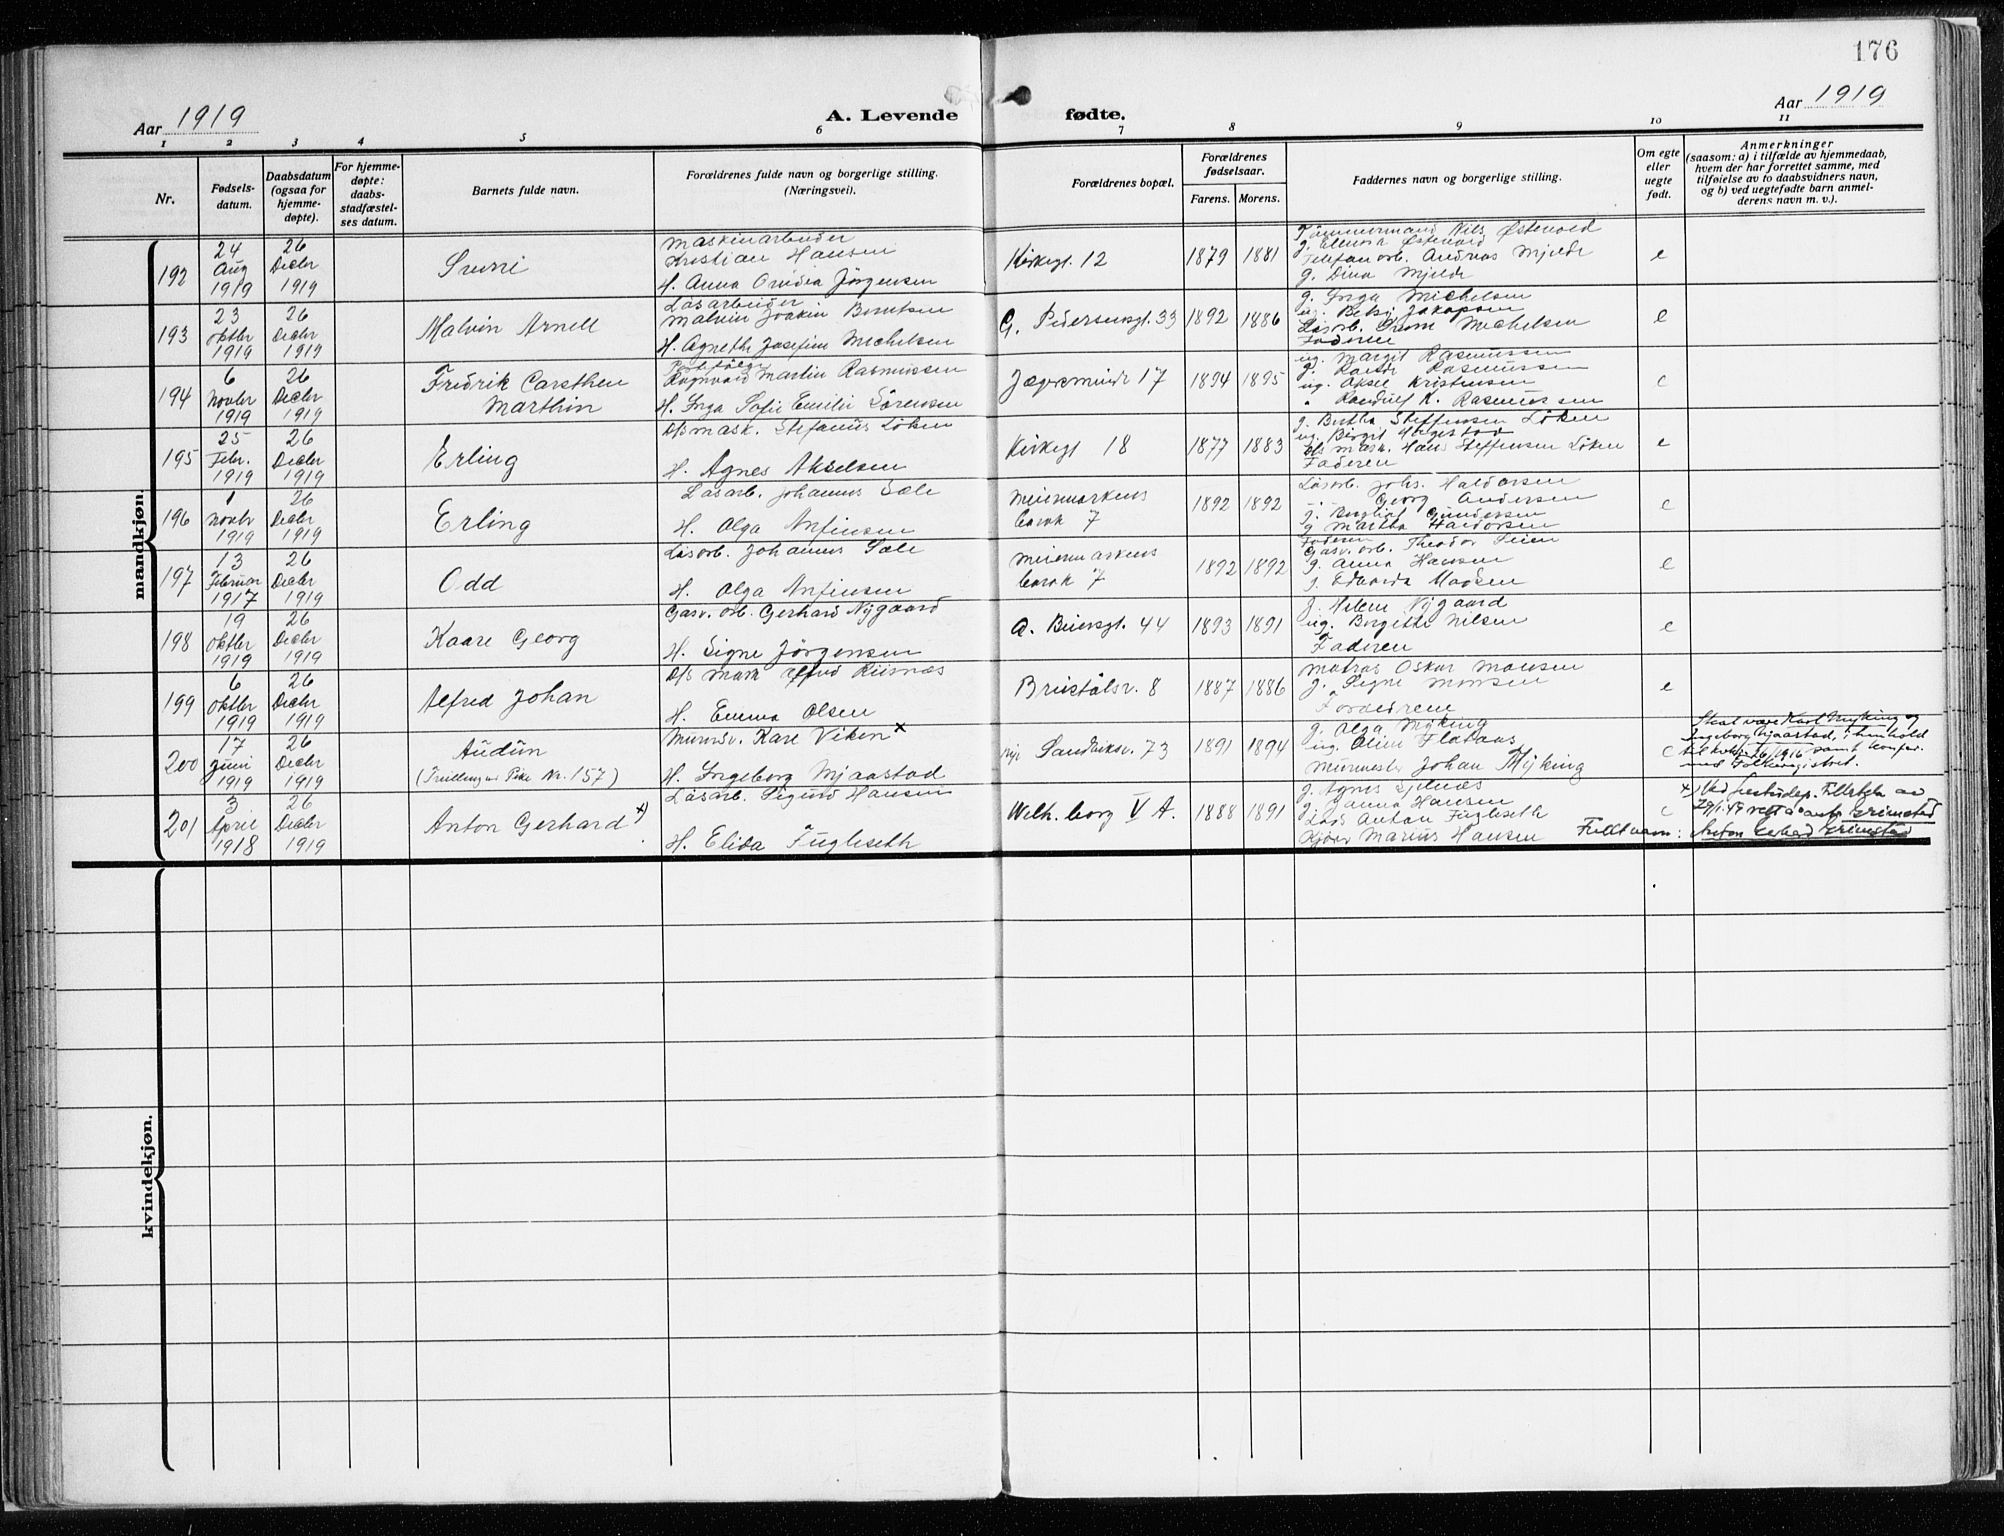 176
Aar 1919
A. Levende fødte.
Aar 1919
1 2 3 4 5 6 7 8 9 10 11
Nr.
Fødsels-
datum.
Daabsdatum
(ogsaa for
hjemme-
døpte).
For hjemme-
døpte:
daabs
stadfæstel-
ses datum.
Barnets fulde navn.
Forældrenes fulde navn og borgerlige stilling.
(Næringsvei).
Forældrenes bopæl.
Forældrenes
fødselsaar.
Farens. Morens.
Faddernes navn og borgerlige stilling.
Om egte
eller
uegte
født.
Anmerkninger
(saasom: a) i tilfælde av hjemmedaab,
hvem der har forrettet samme, med
tilføielse av to daabsvidners navn,
og b) ved uegtefødte barn anmel-
derens navn m. v.).
mandkjøn.
192
24 Aug 1919
26 Decbr 1919
Maskinarbeider
Kristian Hansen
H. Anna Ovidea Jörgensen
Kirkegt. 12
1879 1881
Tömmermand Nils Østevold
g. Østevold
Telefonarb. Andreas Mjelde
g. Dina Mjelde
e
193
23 Oktbr 1919
26 Decbr 1919
Malvin Arnell
Løsarbeider
Malvin Joakim Berntsen
H. Agnethe Josefine Michelsen
G. Pedersensgt. 33
1892 1886
g. Inga Michelsen
ug. Betsy Jakobsen
Løsarb. Michelsen
Faderen
e
194
6 Novbr 1919
26 Decbr 1919
Fredrik Carsthen
Marthin
Ragnvald Martin Rasmussen
H. Inga Sofie Emilie Sörensen
Jægersminde 17
1894 1895
ug. Margit Rasmussen
Rasmussen
ug. Aksel Kristensen
" K. Rasmussen
e
195
25 Febr. 1919
26 Decbr 1919
Erling
D/S mask. Stefanus Löken
H. Agnes Akselsen
Kirkegt 18
1877 1883
g. Bertha Steffensen Löken
ug. Birgit
D/S mask. Hans Steffensen Löken
Faderen
e
196
1 Novbr 1919
26 Decbr 1919
Erling
Løsarb. Johannes Sæle
H. Olga Arfinsen
Meiermarkens
barak 7
1892 1892
Løsarb. Johs. Haldorsen
" Georg Andersen
g. Gundersen
g. Martha Haldorsen
e
197
13 Februar 1917
26 Decbr 1919
Odd
Løsarb. Johannes Sæle
H. Olga Arfinsen
Meiermarkens
barak 7
1892 1892
Faderen
Gasv. arb. Theodor Seien
g. Anna Hansen
g. Edvarda Madsen
e
198
19 Oktbr 1919
26 Decbr 1919
Kaare Georg
Gasv. arb. Gerhard Nygaard
H. Signe Jørgensen
A. Beiersgt. 44
1893 1891
g. Helene Nygaard
ug. Borgette Nilsen
Faderen
e
199
6 Oktbr 1919
26 Decbr 1919
Alfred Johan
D/S Mask Alfred Riisnæs
H. Emma Olsen
Breistölsv. 8
1887 1886
Matros Oskar Monsen
g. Signe Monsen
Forældrene
e
200
17 Juni 1919
26 Decbr 1919
Audun
(Tvilling av Pike Nr. 157)
Murmsv. Kare Viken x
H. Ingeborg Mjaastad
Sandviksv. 73
1891 1894
g. Olga Myking
ug. Oline Flataas
Murmester Johan Myking
e
Skal være Karl Myking og
Ingeborg Mjaastad, i henhold
til 26/1916 samt konfer.
med Folkeregistret.
201
3 April 1918
26 Decbr 1919
Anton Gerhard x)
Løsarb. Sigurd Hansen
H. Elida Fugleseth
Welh. borg V A.
1888 1891
g. Agnes Gjelnæs
g. Janna Hansen
Lods Anton Fugleseth
Kjører Marius Hansen
e
x) Ved Justisdep. tillatelse av
29/1.47 rett å anta Grimstad
Fullt navn: Anton Gerhard Grimstad
kvindekjøn.